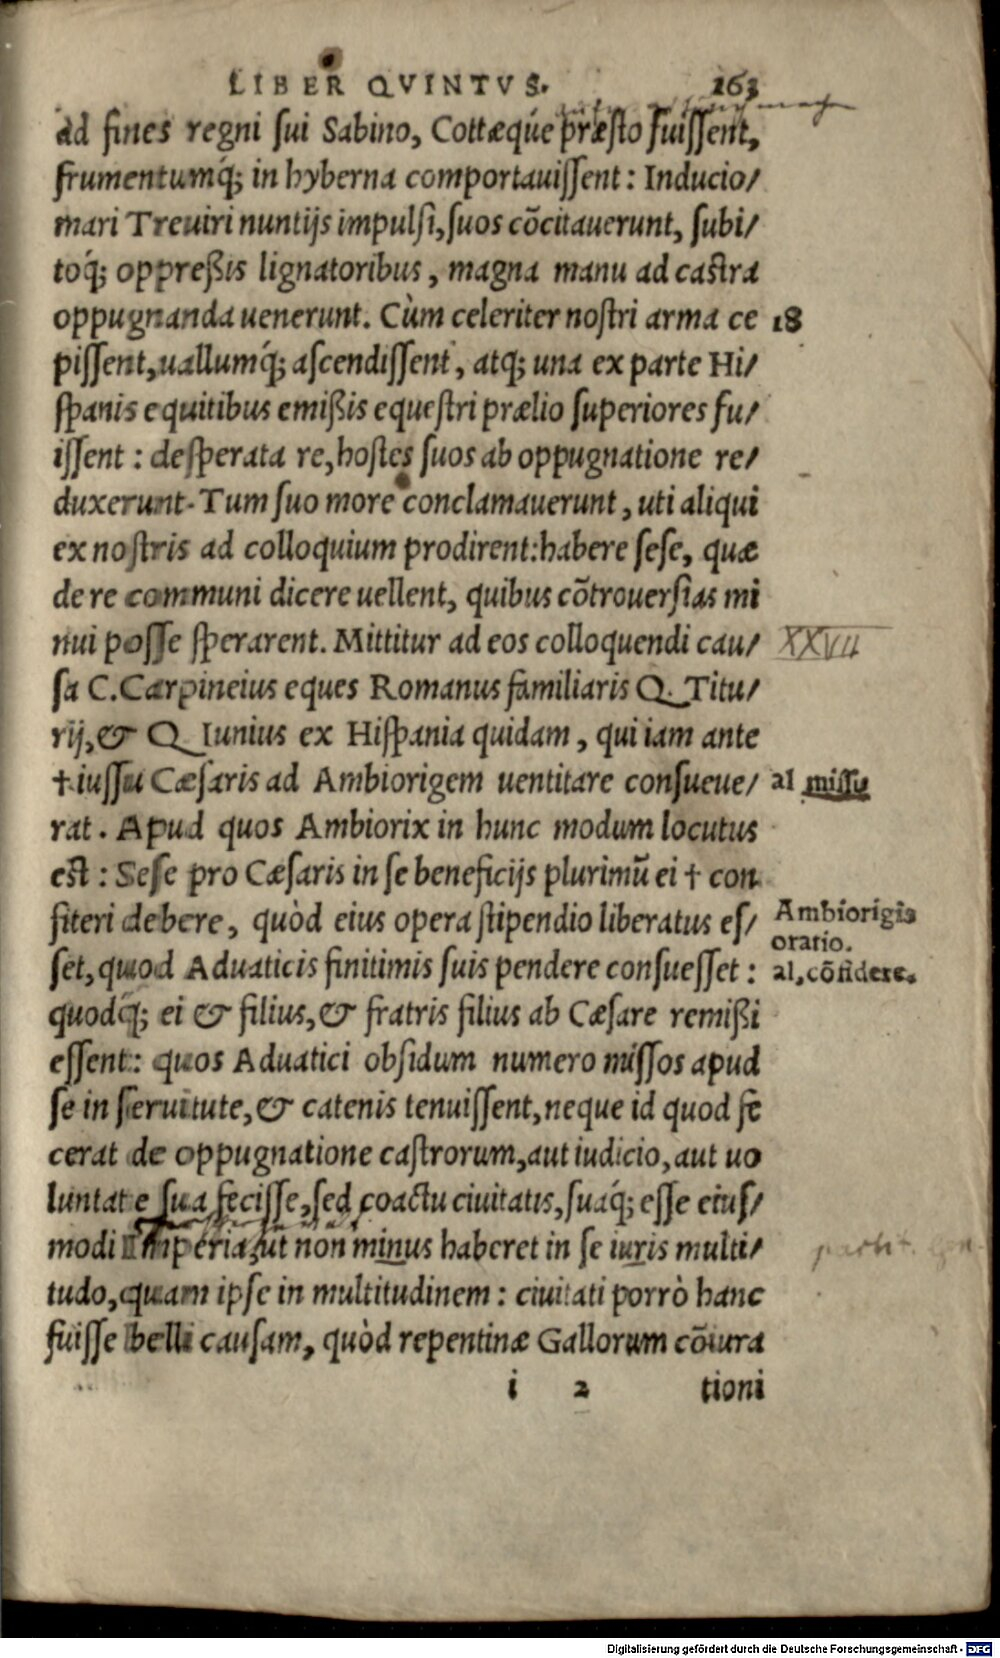 LIBER QVINTVS. 163
ad fines regni sui Sabino, Cottæqúe præsto fuissent,
frumentumq́; in hyberna comportauissent: Inducio/
mari Treuiri nuntijs impulsi, suos cōcitauerunt, subi/
toq́; oppreßis lignatoribus, magna manu ad castra
oppugnanda uenerunt. Cùm celeriter nostri arma ce
18
pissent, uallumq́; ascendissent, atq; una ex parte Hi/
spanis equitibus emißis equestri prælio superiores fu/
issent: desperata re, hostes suos ab oppugnatione re/
duxerunt. Tum suo more conclamauerunt, uti aliqui
ex nostris ad colloquium prodirent: habere sese, quæ
de re communi dicere uellent, quibus cōtrouersias mi
nui posse sperarent. Mittitur ad eos colloquendi cau/
XXVII
sa C. Carpineius eques Romanus familiaris Q. Titu/
rij, & Q. Iunius ex Hispania quidam, qui iam ante
† iussu Cæsaris ad Ambiorigem uentitare consueue/
al missu
rat. Apud quos Ambiorix in hunc modum locutus
est: Sese pro Cæsaris in se beneficijs plurimū ei † con
fiteri debere, quòd eius opera stipendio liberatus es/
Ambiorigis
oratio.
set, quod Aduaticis finitimis suis pendere consuesset:
al, cōfidere.
quodq́; ei & filius, & fratris filius ab Cæsare remißi
essent: quos Aduatici obsidum numero missos apud
se in seruitute, & catenis tenuissent, neque id quod fe
cerat de oppugnatione castrorum, aut iudicio, aut uo
luntate sua fecisse, sed coactu ciuitatis, suaq́; esse eius/
modi imperia, ut non minus haberet in se iuris multi/
tudo, quam ipse in multitudinem: ciuitati porrò hanc
fuisse belli causam, quòd repentinæ Gallorum cōiura
i 2 tioni
Digitalisierung gefördert durch die Deutsche Forschungsgemeinschaft - DFG